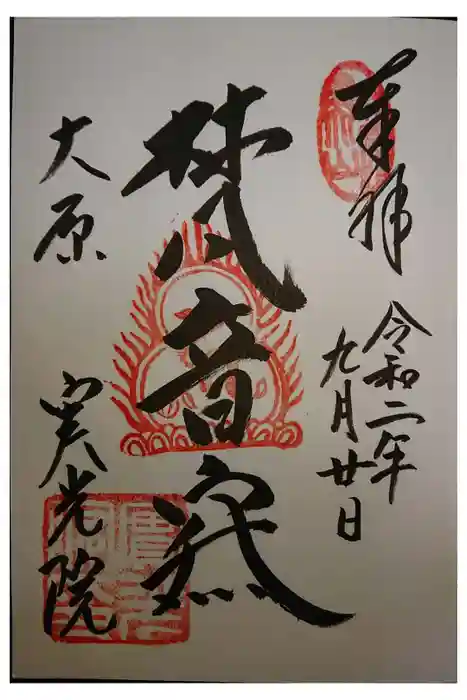 奉拝
令和二年
九月廿日
梵音
大原
実光院